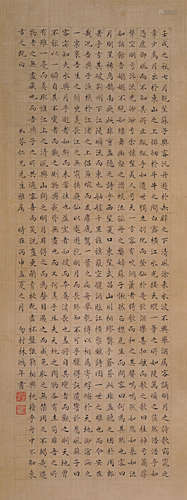 壬戌之秋七月既望蘇子與客泛舟遊於赤壁之下清風徐來水波不興舉酒屬客誦明月之詩歌窈窕
之章少焉月出於東山之上徘徊於斗牛之間白露橫江水光接天縱一葦之所如凌萬頃之茫然浩浩乎如
憑虛御風而不知其所止飄飄乎如遺世獨立羽化而登仙於是飲酒樂甚扣舷而歌之歌曰桂棹兮蘭槳
擊空明兮泝流光渺渺兮予懷望美人兮天一方客有吹洞簫者倚歌而和之其聲嗚嗚然如怨如慕如泣
如訴餘音嫋嫋不絕如縷舞幽壑之潛蛟泣孤舟之嫠婦蘇子愀然正襟危坐而問客曰何為其然也客曰
月明星稀烏鵲南飛此非曹孟德之詩乎西望夏口東望武昌山川相繆鬱乎蒼蒼此非孟德之困於周郎
者乎方其破荊州下江陵順流而東也舳艫千里旌旗蔽空釃酒臨江橫槊賦詩固一世之雄也而今安在
哉況吾與子漁樵於江渚之上侶魚蝦而友麋鹿駕一葉之扁舟舉匏樽以相屬寄蜉蝣於天地渺滄海之
一粟哀吾生之須臾羨長江之無窮挾飛仙以遨遊抱明月而長終知不可乎驟得託遺響於悲風蘇子曰
客亦知夫水與月乎逝者如斯而未嘗往也盈虛者如彼而卒莫消長也蓋將自其變者而觀之則天地曾
不能以一瞬自其不變者而觀之則物與我皆無盡也而又何羨乎且夫天地之間物各有主苟非吾之所
有雖一毫而莫取惟江上之清風與山間之明月耳得之而為聲目遇之而成色取之無禁用之不竭是造
物者之無盡藏也而吾與子之所共適客喜而笑洗盞更酌肴核既盡杯盤狼藉相與枕藉乎舟中不知東
方之既白
仁兄先生雅屬 時在丙申孟夏之月 林年書